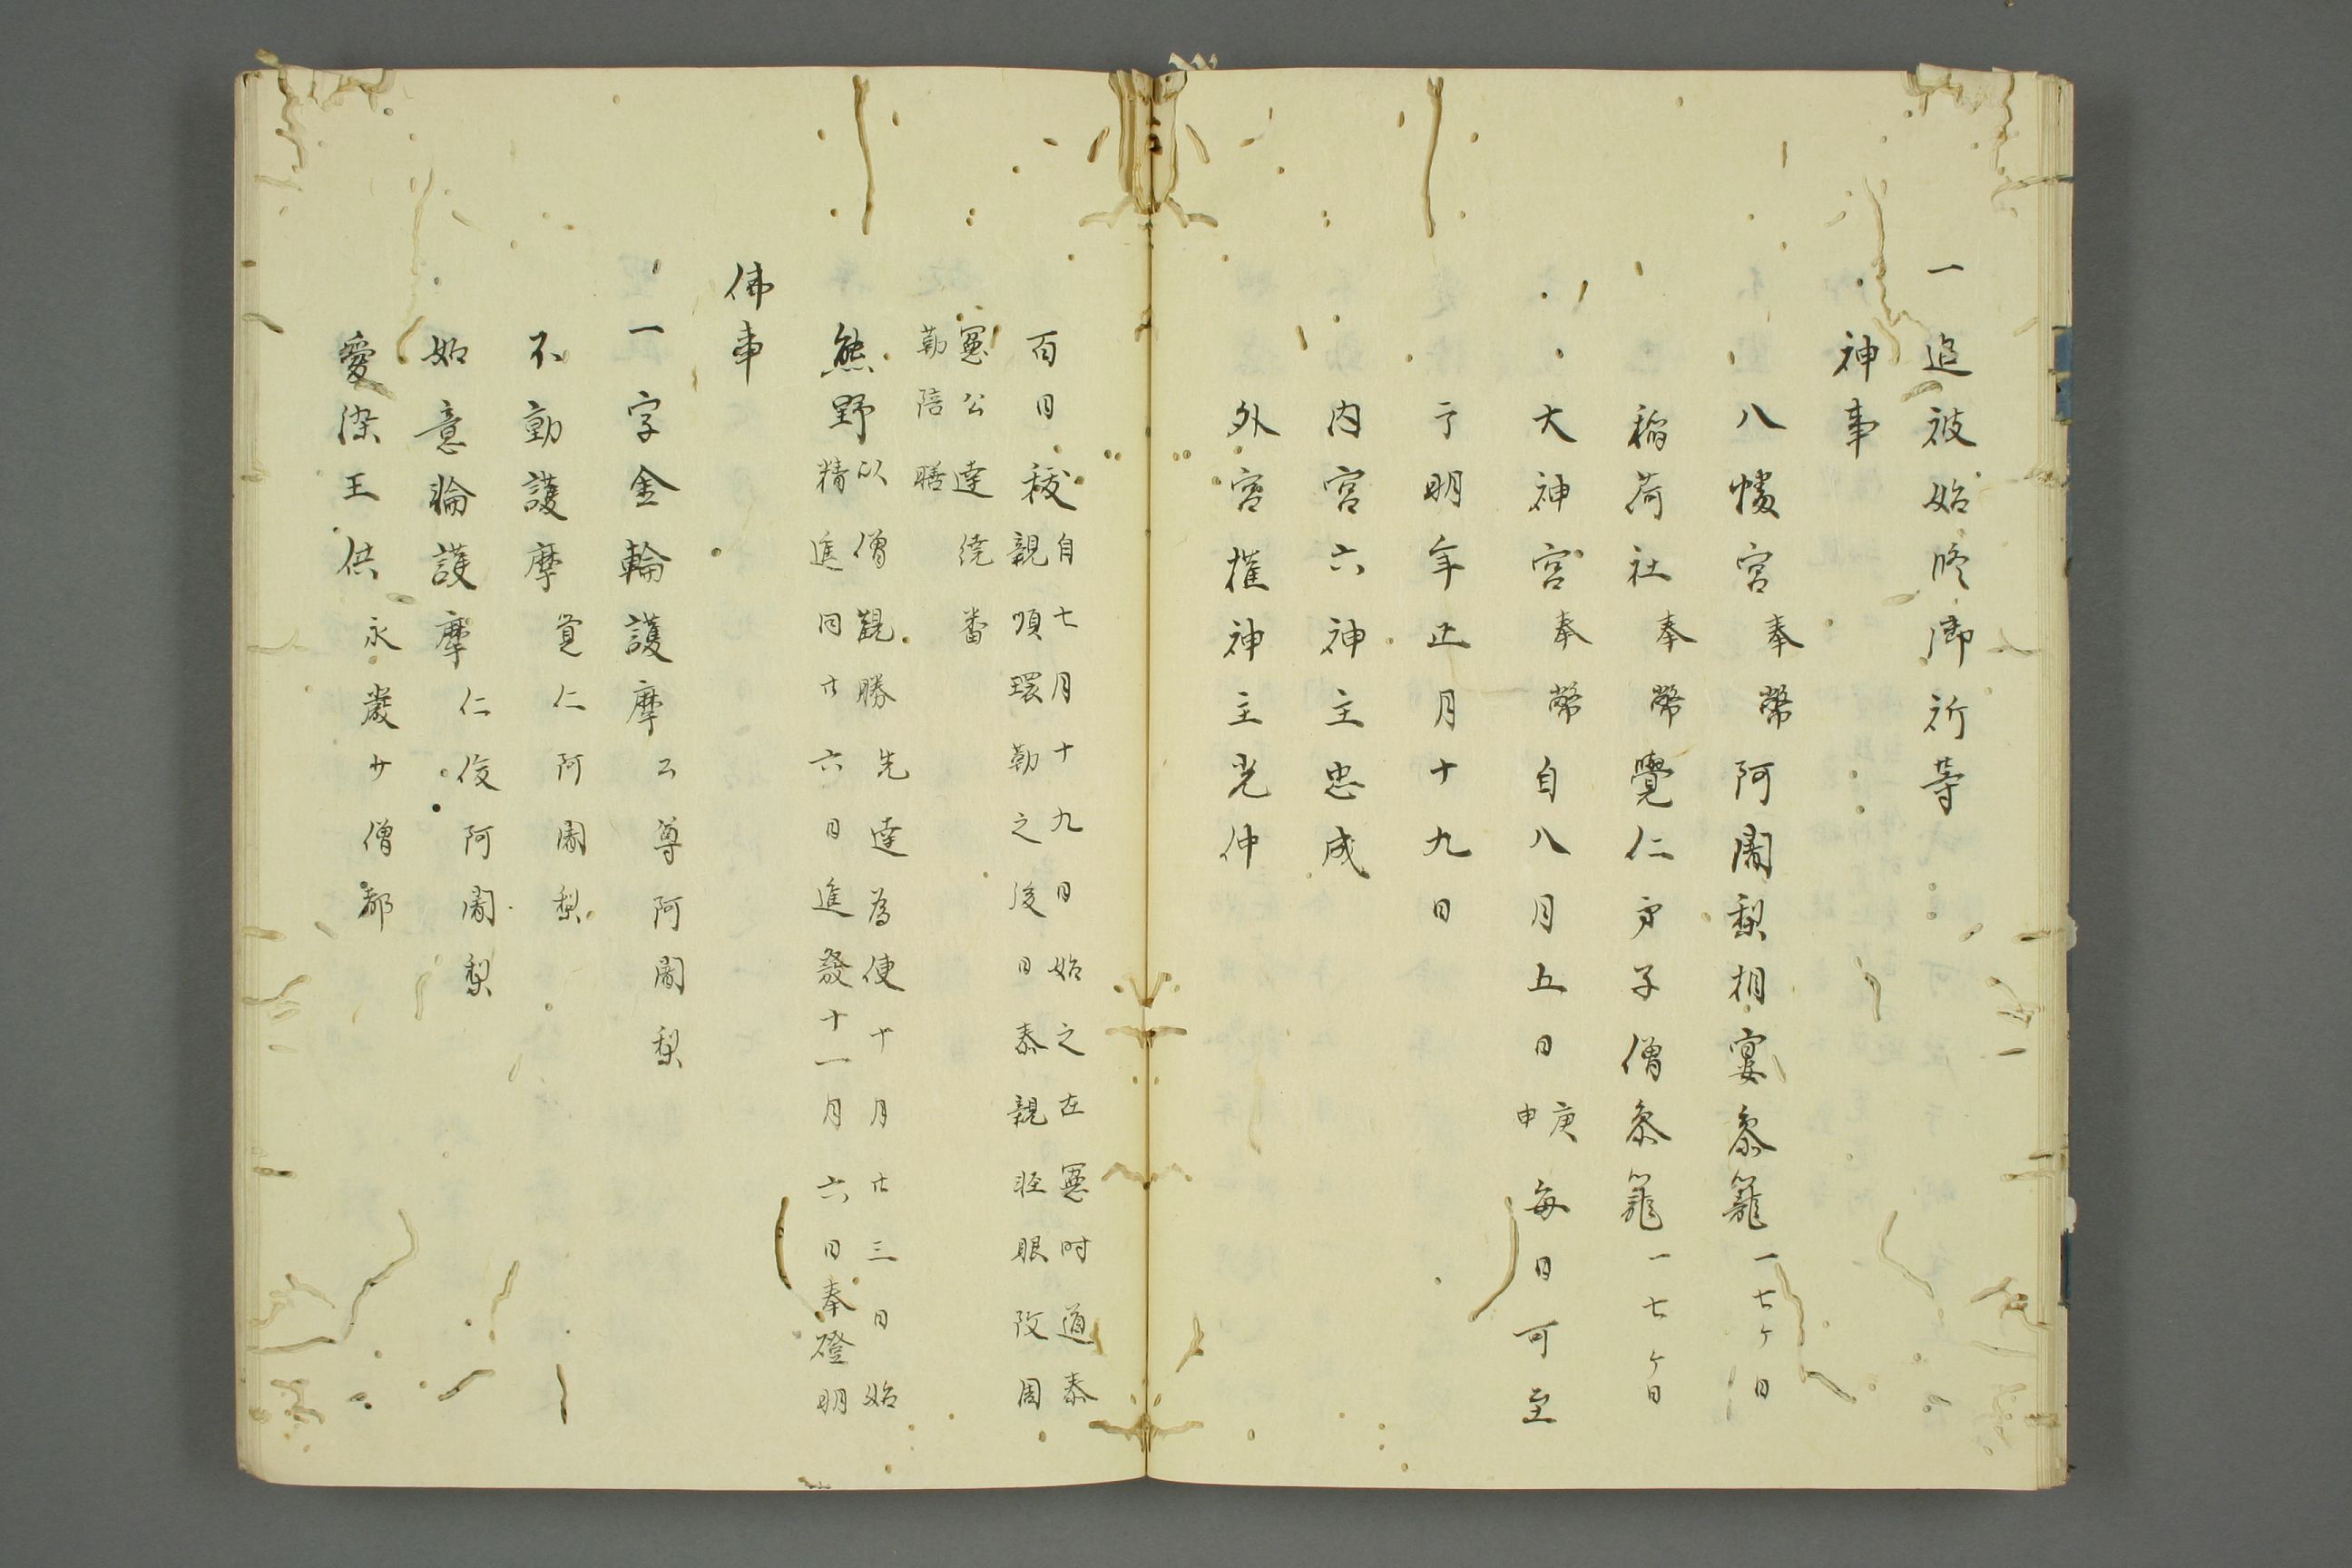 一 追被始修御祈等
神事
八幡宮奉幣阿闍梨相宴参籠一七ケ日
稲荷社奉幣覺仁弟子僧参籠一七ケ日
大神宮奉幣自八月五日庚申毎日可至
于明年正月十九日
内宮六神主忠成
外宮権神主光仲
百日祓自七月十九日始之在憲時道泰
親順環勤之後日泰親 眼改周
憲公達繞番
勤陪膳
熊野以僧觀勝先達為使十月廿三日始
精進同廿六日進發十一月六日奉燈明
佛事
一字金輪護摩 公尊阿闍梨
不動護摩 覚仁阿闍梨
如意輪護摩 仁俊阿闍梨
愛染王供 永嚴少僧都